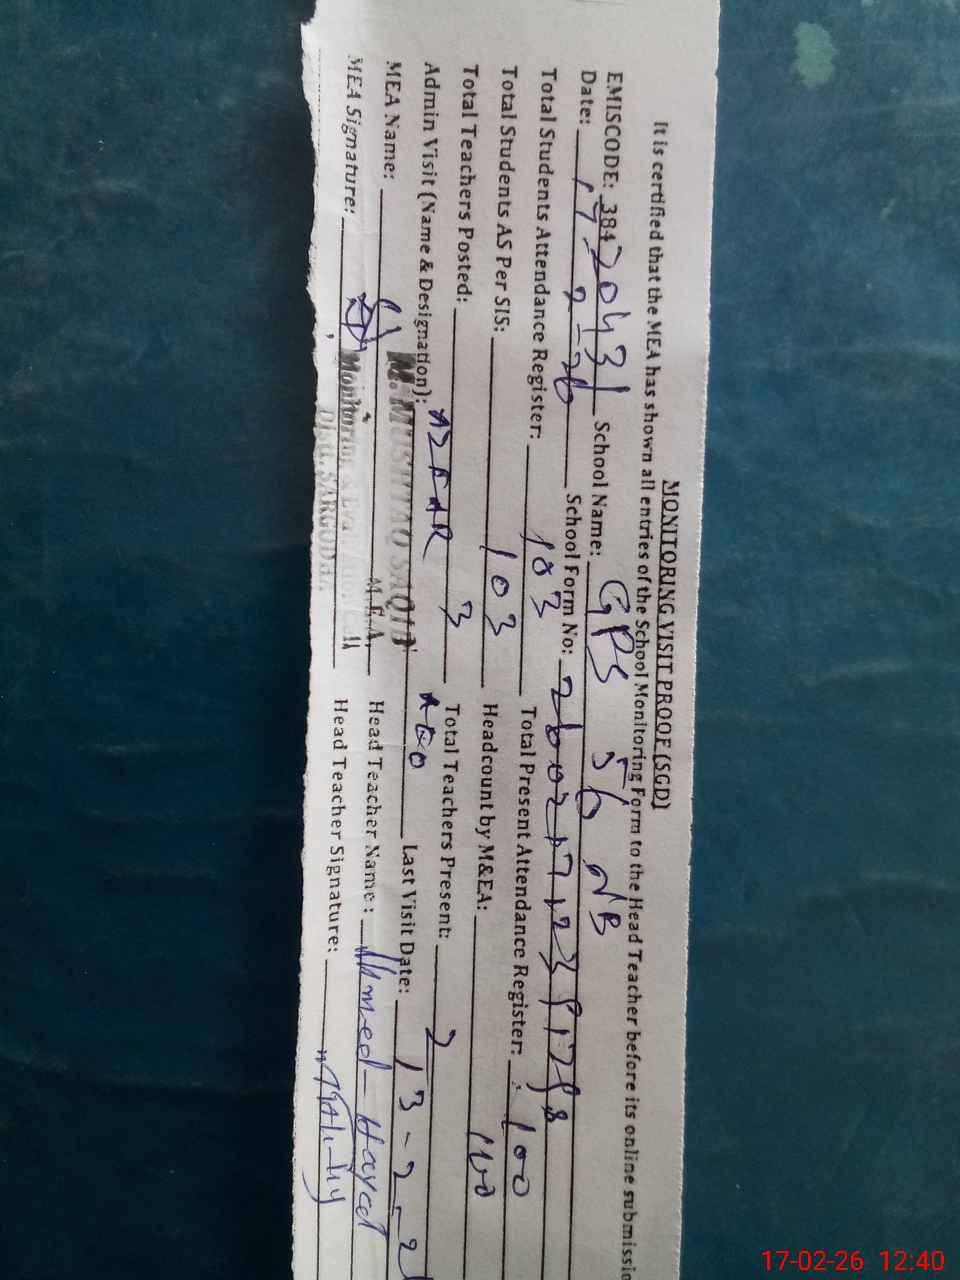 MONITORING VISIT PROOF (SGD)
It is certified that the MEA has shown all entries of the School Monitoring Form to the Head Teacher before its online submissio
EMISCODE: 38420431 School Name: GPS 56 NB
Date: 17-2-26 School Form No:
Total Students Attendance Register: 103 Total Present Attendance Register: 100
Total Students AS Per SIS: 103 Headcount by M&EA: 100
Total Teachers Posted: 3 Total Teachers Present: 2
Admin Visit (Name & Designation): AZFAR AEO Last Visit Date: 13-2-2
MEA Name: M. MUSHTAQ SAQIB Head Teacher Name: Ahmed Hayat
M.E.A.
MEA Signature: Monitoring & Cell Head Teacher Signature:
Distt. SARGODHA
17-02-26 12:40